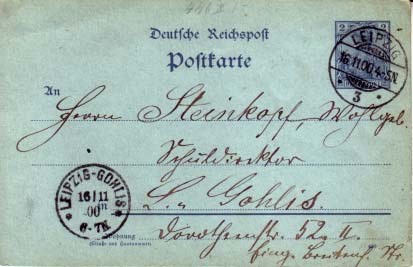 Deutsche Reichspost
Postkarte
2 2
LEIPZIG
16.11.00.4-5N.
3
An
Herrn Steinkopf, Wohlgeb.
Schuldirektor
L.-Gohlis.
LEIPZIG-GOHLIS
16/11
00
6-7N.
Wohnung
(Straße und Hausnummer)
Dorotheenstr. 52. II.
Eing. Breitenf. Str.